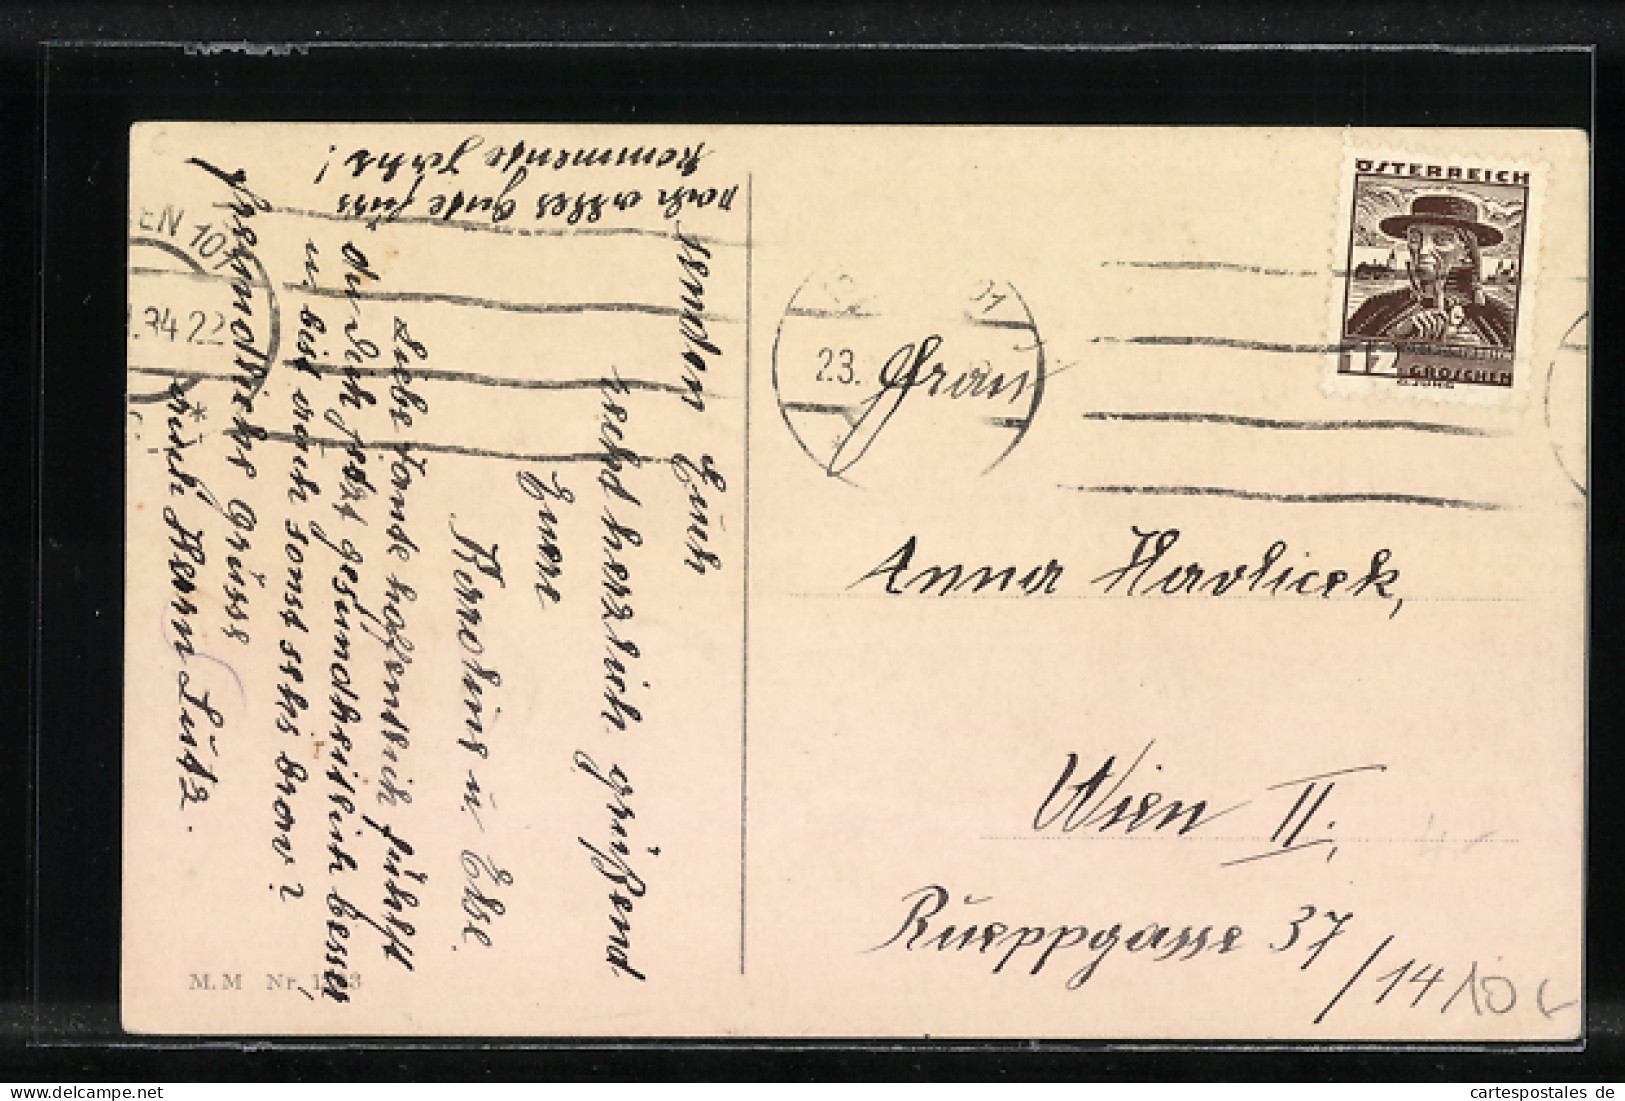 senden Euch
recht herzlich grüßend
Euere
Karoline u. Else.
Liebe Tante hoffentlich fühlst
du Dich jetzt gesundheitlich besser
u. bist auch sonst sehr brav?
Herzliche Grüsse
auch Herrn Lutz.
noch alles Gute fürs
kommende Jahr!
M. M Nr.
EN 101
.34 22
23.
ÖSTERREICH
12
GROSCHEN
Frau
Anna Havlicek,
Wien II,
Rueppgasse 37/14
10
cartespostales de